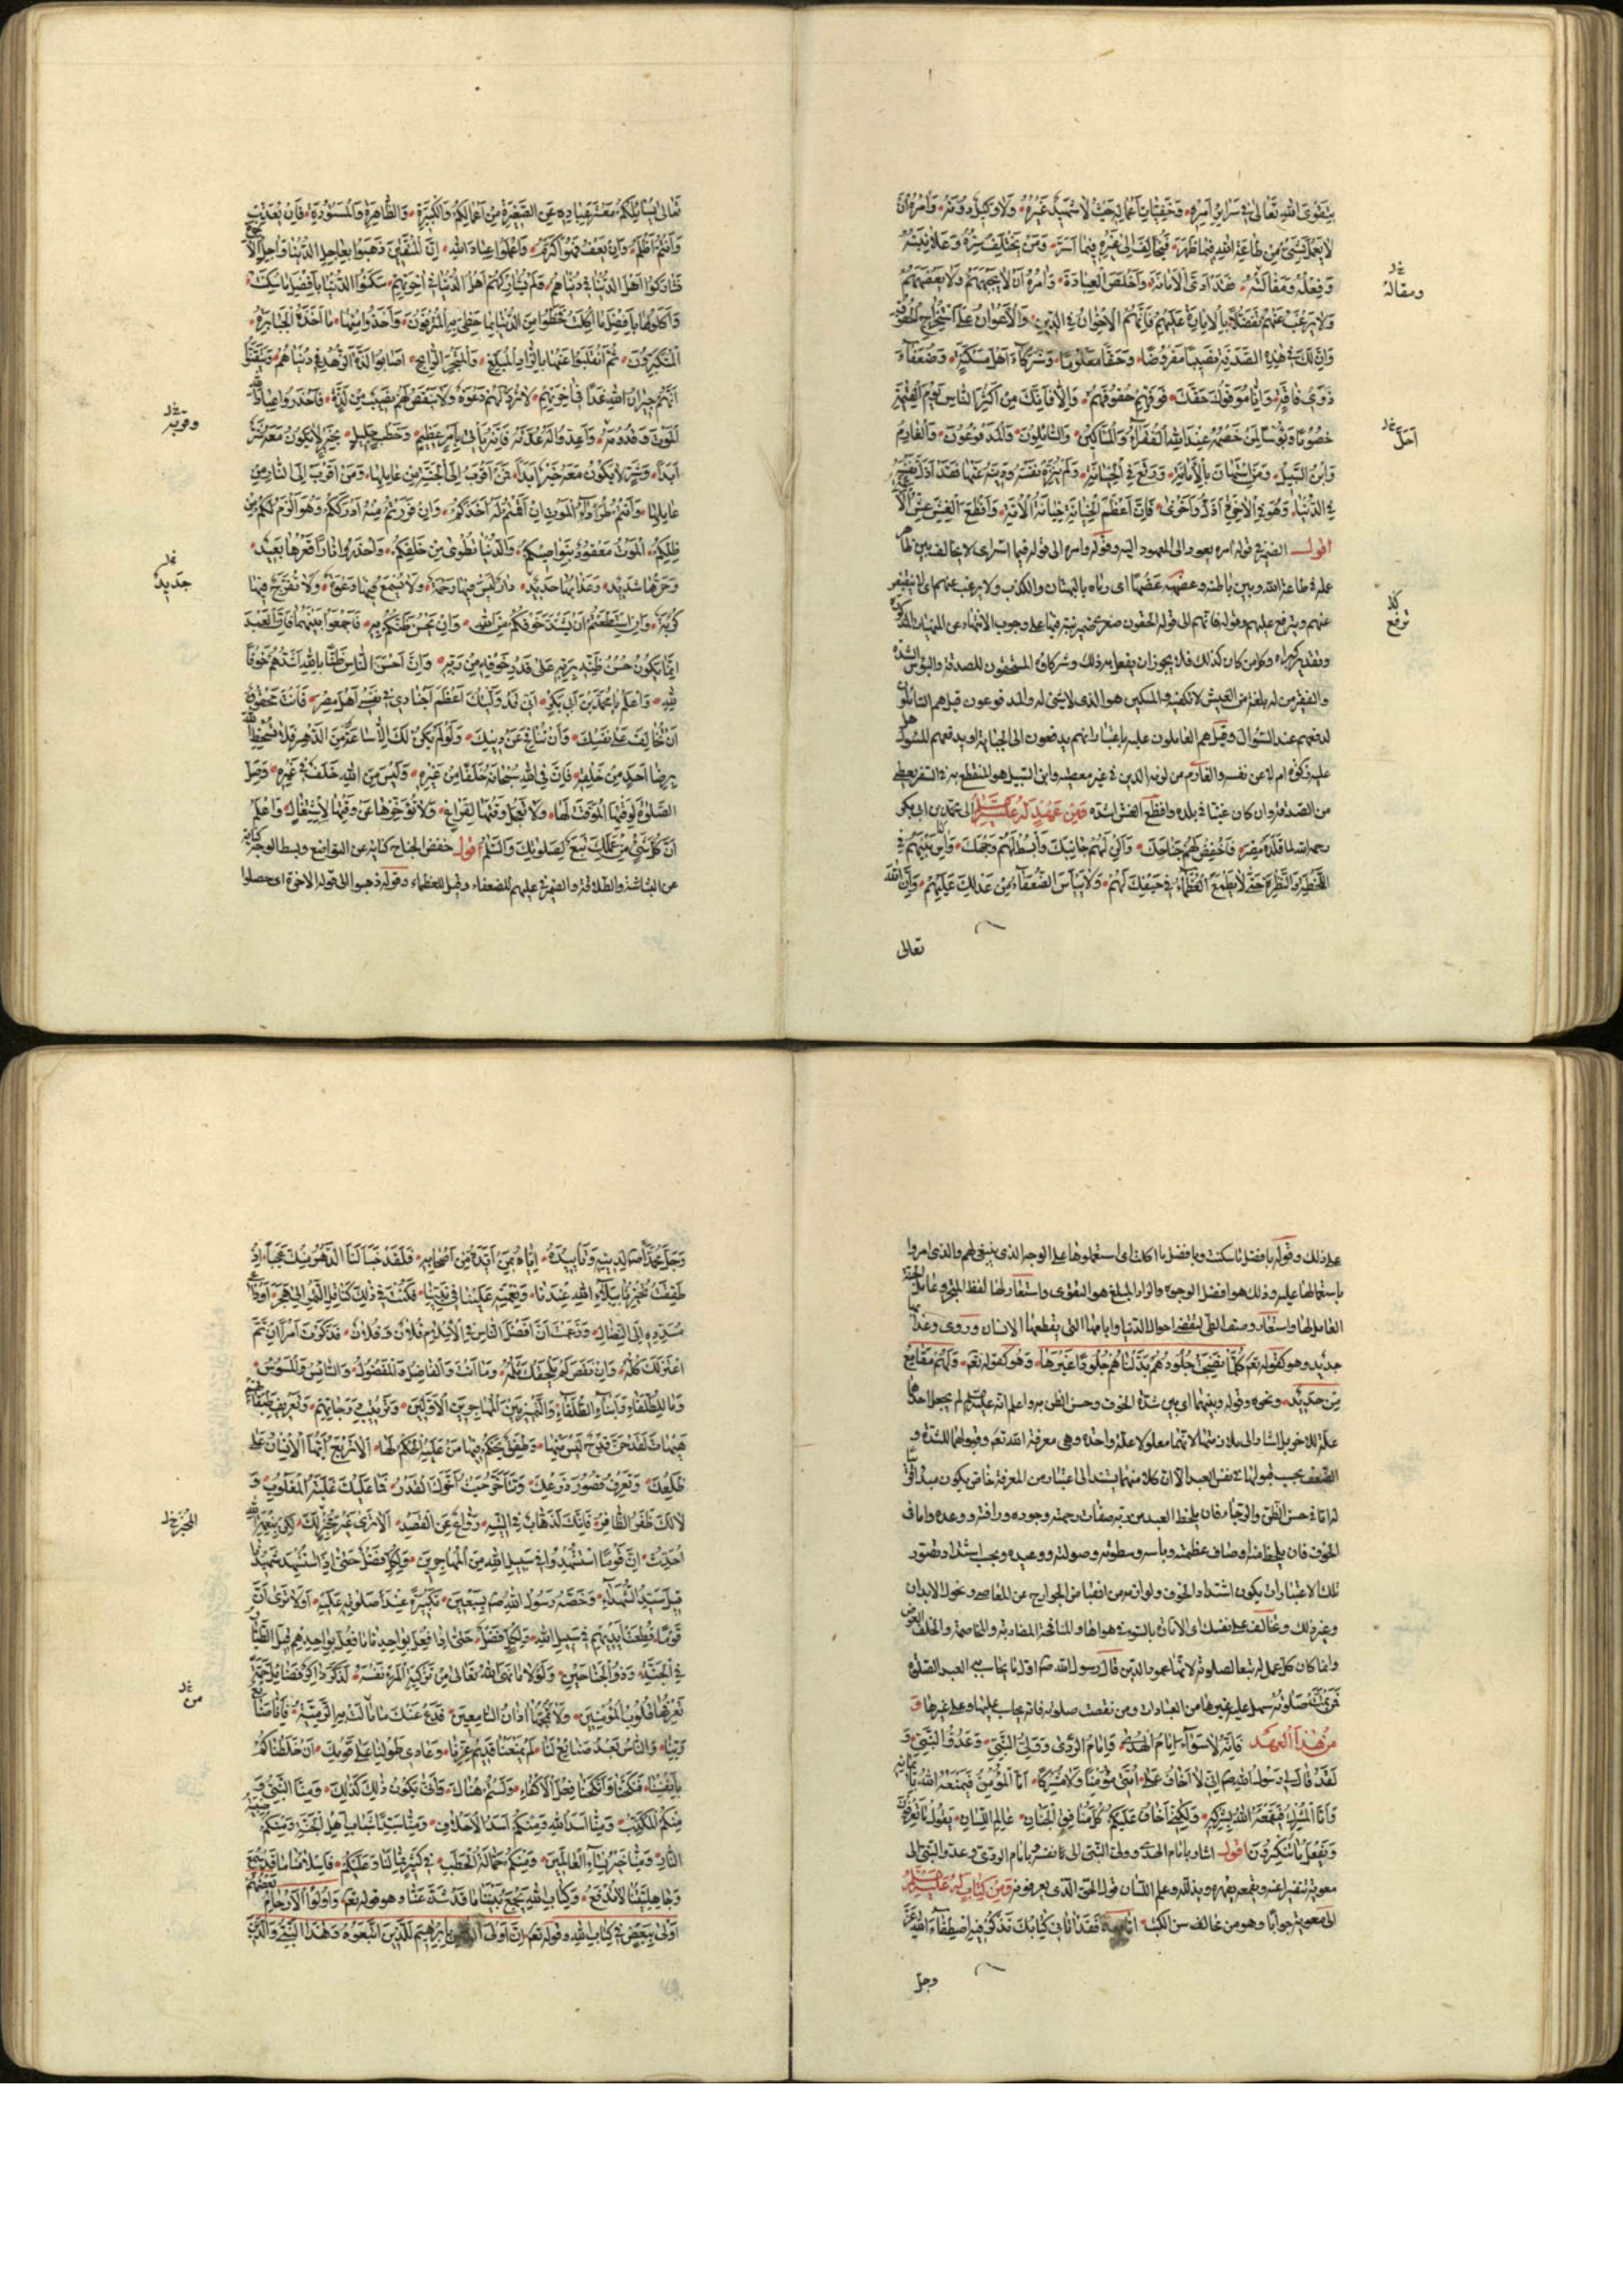 بِتَقْوَى اللهِ تَعَالَى فِي سَرَائِرِ اَمْرِهِ وَخَفِيَّاتِ اَعْمَالِهِ حَيْثُ لَا شَهِيدَ غَيْرُهُ وَلَا وَكِيلَ دُونَهُ وَاَمَرَهُ اَنْ
لَا يَعْمَلَ بِشَيْءٍ مِنْ طَاعَةِ اللهِ فِيمَا ظَهَرَ فَيُخَالِفَ اِلَى غَيْرِهِ فِيمَا اَسَرَّ وَمَنْ لَمْ يَخْتَلِفْ سِرُّهُ وَعَلَانِيَتُهُ
وَفِعْلُهُ وَمَقَالَتُهُ فَقَدْ اَدَّى الْاَمَانَةَ وَاَخْلَصَ الْعِبَادَةَ وَاَمَرَهُ اَنْ لَا يَجْبَهَهُمْ وَلَا يَعْضَهَهُمْ
وَلَا يَرْغَبَ عَنْهُمْ تَفَضُّلًا بِالْاِمَارَةِ عَلَيْهِمْ فَاِنَّهُمُ الْاِخْوَانُ فِي الدِّينِ وَالْاَعْوَانُ عَلَى اسْتِخْرَاجِ الْحُقُوقِ
وَاِنَّ لَكَ فِي هَذِهِ الصَّدَقَةِ نَصِيبًا مَفْرُوضًا وَحَقًّا مَعْلُومًا وَشُرَكَاءَ اَهْلَ مَسْكَنَةٍ وَضُعَفَاءَ
ذَوِي فَاقَةٍ وَاِنَّا مُوَفُّوكَ حَقَّكَ فَوَفِّهِمْ حُقُوقَهُمْ وَاِلَّا فَاِنَّكَ مِنْ اَكْثَرِ النَّاسِ يَوْمَ الْقِيٰمَةِ
خُصُومًا وَبُؤْسًا لِمَنْ خَصْمُهُ عِنْدَ اللهِ الْفُقَرَاءُ وَالْمَسَاكِينُ وَالسَّائِلُونَ وَالْمَدْفُوعُونَ وَالْغَارِمُ
وَابْنُ السَّبِيلِ وَمَنِ اسْتَهَانَ بِالْاَمَانَةِ وَرَتَعَ فِي الْخِيَانَةِ وَلَمْ يُنَزِّهْ نَفْسَهُ وَدِينَهُ عَنْهَا فَقَدْ اَذَلَّ نَفْسَهُ
فِي الدُّنْيَا وَهُوَ فِي الْاٰخِرَةِ اَذَلُّ وَاَخْزَى فَاِنَّ اَعْظَمَ الْخِيَانَةِ خِيَانَةُ الْاُمَّةِ وَاَفْظَعَ الْغِشِّ غِشُّ الْاَئِمَّةِ
اقول الضمير في قوله امره يعود الى المعهود اليه وقوله وامره الى قوله فيما اسر اى لا يخالف بين ظاهر
علمه في طاعة الله وبين باطنه وعضهه عضها اى رماه بالبهتان والكذب ولا يرغب عنهم اى لا ينقبض
عنهم ويترفع عليهم وقوله فانهم الى قوله الحقوق صغرى ضمير نبه فيها على وجوب الانتهاء عن المنهيات المذكورة
وتقدير كبراه وكل من كان كذلك فلا يجوز ان يفعل به ذلك وشركاؤه المستحقون للصدقة والبؤس الشدة
والفقير من له بلغة من العيش لا تكفيه والمسكين هو الذى لا شئ له والمدفوعون قيل هم السائلون
لدفعهم عند السؤال وقيل هم العاملون عليها باعتبار انهم يدفعون الى الجباية او يدفعهم للسؤال
من الصدقة وان كان غنيا في بلده وافظع الغش اشده ومن عهد له عليه السلام الى محمد بن ابى بكر
رحمه الله لما قلده مصر فَاخْفِضْ لَهُمْ جَنَاحَكَ وَاَلِنْ لَهُمْ جَانِبَكَ وَابْسُطْ لَهُمْ وَجْهَكَ وَاٰسِ بَيْنَهُمْ فِي
اللَّحْظَةِ وَالنَّظْرَةِ حَتَّى لَا يَطْمَعَ الْعُظَمَاءُ فِي حَيْفِكَ لَهُمْ وَلَا يَيْاَسَ الضُّعَفَاءُ مِنْ عَدْلِكَ عَلَيْهِمْ وَاِنَّ اللهَ
تعالى
ومقاله
اَحَلَّ
ترفع
تَعَالَى يُسَائِلُكُمْ مَعْشَرَ عِبَادِهِ عَنِ الصَّغِيرَةِ مِنْ اَعْمَالِكُمْ وَالْكَبِيرَةِ وَالظَّاهِرَةِ وَالْمَسْتُورَةِ فَاِنْ يُعَذِّبْ
فَاَنْتُمْ اَظْلَمُ وَاِنْ يَعْفُ فَهُوَ اَكْرَمُ وَاعْلَمُوا عِبَادَ اللهِ اِنَّ الْمُتَّقِينَ ذَهَبُوا بِعَاجِلِ الدُّنْيَا وَاٰجِلِ الْاٰخِرَةِ
فَشَارَكُوا اَهْلَ الدُّنْيَا فِي دُنْيَاهُمْ وَلَمْ يُشَارِكْهُمْ اَهْلُ الدُّنْيَا فِي اٰخِرَتِهِمْ سَكَنُوا الدُّنْيَا بِاَفْضَلِ مَا سُكِنَتْ
وَاَكَلُوهَا بِاَفْضَلِ مَا اُكِلَتْ فَحَظُوا مِنَ الدُّنْيَا بِمَا حَظِيَ بِهِ الْمُتْرَفُونَ وَاَخَذُوا مِنْهَا مَا اَخَذَهُ الْجَبَابِرَةُ
الْمُتَكَبِّرُونَ ثُمَّ انْقَلَبُوا عَنْهَا بِالزَّادِ الْمُبَلِّغِ وَالْمَتْجَرِ الرَّابِحِ اَصَابُوا لَذَّةَ الزُّهْدِ فِي دُنْيَاهُمْ وَتَيَقَّنُوا
اَنَّهُمْ جِيرَانُ اللهِ غَدًا فِي اٰخِرَتِهِمْ لَا تُرَدُّ لَهُمْ دَعْوَةٌ وَلَا يَنْقُصُ لَهُمْ نَصِيبٌ مِنْ لَذَّةٍ فَاحْذَرُوا عِبَادَ اللهِ
الْمَوْتَ وَقُرْبَهُ وَاَعِدُّوا لَهُ عُدَّتَهُ فَاِنَّهُ يَأْتِي بِاَمْرٍ عَظِيمٍ وَخَطْبٍ جَلِيلٍ بِخَيْرٍ لَا يَكُونُ مَعَهُ شَرٌّ
اَبَدًا وَشَرٍّ لَا يَكُونُ مَعَهُ خَيْرٌ اَبَدًا فَمَنْ اَقْرَبُ اِلَى الْجَنَّةِ مِنْ عَامِلِهَا وَمَنْ اَقْرَبُ اِلَى النَّارِ مِنْ
عَامِلِهَا وَاَنْتُمْ طُرَدَاءُ الْمَوْتِ اِنْ اَقَمْتُمْ لَهُ اَخَذَكُمْ وَاِنْ فَرَرْتُمْ مِنْهُ اَدْرَكَكُمْ وَهُوَ اَلْزَمُ لَكُمْ مِنْ
ظِلِّكُمْ الْمَوْتُ مَعْقُودٌ بِنَوَاصِيكُمْ وَالدُّنْيَا تُطْوَى مِنْ خَلْفِكُمْ وَاحْذَرُوا نَارًا قَعْرُهَا بَعِيدٌ
وَحَرُّهَا شَدِيدٌ وَعَذَابُهَا حَدِيدٌ دَارٌ لَيْسَ فِيهَا رَحْمَةٌ وَلَا تُسْمَعُ فِيهَا دَعْوَةٌ وَلَا تُفَرَّجُ فِيهَا
كُرْبَةٌ وَاِنِ اسْتَطَعْتُمْ اَنْ يَشْتَدَّ خَوْفُكُمْ مِنَ اللهِ وَاَنْ يَحْسُنَ ظَنُّكُمْ بِهِ فَاجْمَعُوا بَيْنَهُمَا فَاِنَّ الْعَبْدَ
اِنَّمَا يَكُونُ حُسْنُ ظَنِّهِ بِرَبِّهِ عَلَى قَدْرِ خَوْفِهِ مِنْ رَبِّهِ وَاِنَّ اَحْسَنَ النَّاسِ ظَنًّا بِاللهِ اَشَدُّهُمْ خَوْفًا
لِلهِ وَاعْلَمْ يَا مُحَمَّدَ بْنَ اَبِي بَكْرٍ اَنِّي قَدْ وَلَّيْتُكَ اَعْظَمَ اَجْنَادِي فِي نَفْسِي اَهْلَ مِصْرَ فَاَنْتَ مَحْقُوقٌ
اَنْ تُخَالِفَ عَلَى نَفْسِكَ وَاَنْ تُنَافِحَ عَنْ دِينِكَ وَلَوْ لَمْ يَكُنْ لَكَ اِلَّا سَاعَةٌ مِنَ الدَّهْرِ فَلَا تُسْخِطِ اللهَ
بِرِضَا اَحَدٍ مِنْ خَلْقِهِ فَاِنَّ فِي اللهِ سُبْحَانَهُ خَلَفًا مِنْ غَيْرِهِ وَلَيْسَ مِنَ اللهِ خَلَفٌ فِي غَيْرِهِ وَصَلِّ
الصَّلٰوةَ لِوَقْتِهَا الْمُوَقَّتِ لَهَا وَلَا تُعَجِّلْ وَقْتَهَا لِفَرَاغٍ وَلَا تُؤَخِّرْهَا عَنْ وَقْتِهَا لِاشْتِغَالٍ وَاعْلَمْ
اَنَّ كُلَّ شَيْءٍ مِنْ عَمَلِكَ تَبَعٌ لِصَلٰوتِكَ وَالسَّلَمُ اقول خفض الجناح كناية عن التواضع وبسط الوجه كناية
عن البشاشة والطلاقة والضمير في عليهم للضعفاء وقيل للعظماء وقوله ذهبوا الى قوله الاخرة اى حصلوا
وقربه
جديد
على ذلك وقوله بافضل ما سكنت وبافضل ما اكلت اى استعملوها على الوجه الذى ينبغى لهم والذى امروا
باستعمالها عليه وذلك هو افضل الوجوه والزاد المبلغ هو التقوى واستعار لها لفظ المتجر وعامل الجنة
العامل لها واستعار وصف الطى لتقضى احوال الدنيا وايامها التى يقطعها الانسان وروى وعذابها
جديد وهو كقوله تعم كُلَّمَا نَضِجَتْ جُلُودُهُمْ بَدَّلْنَاهُمْ جُلُودًا غَيْرَهَا وَهُوَ كَقَوْلِهِ تَعَم وَلَهُمْ مَقَامِعُ
مِنْ حَدِيدٍ ونحوه وقوله وبينهما اى بين شدة الخوف وحسن الظن به واعلم انه عليه السلام لم يجعل احدهما
علة للاخر بل اشار الى تلازمهما لانهما معلولا علة واحدة وهى معرفة الله تعم وقبولهما للشدة و
الضعف بحسب قبولها في نفس العبد الا ان كلا منهما يستند الى اعتبار من المعرفة خاص يكون مبدا قريبا
له اما في حسن الظن والرجاء فان يلحظ العبد من ربه صفات رحمته وجوده ورافته ووعده واما في
الخوف فان يلحظ منه اوصاف عظمته وباسه وسطوته وصولته ووعيده وبحسب اشتداد تصور
تلك الاعتبارات يكون اشتداد الخوف ولوازمه من انقباض الجوارح عن المعاصى ونحول الابدان
وغير ذلك وتخالف على نفسك اى الامارة بالسوء في هواها والمنافحة المضاربة والمخاصمة والخلف العوض
وانما كان كل عمل له تبعا لصلوته لانها عمود الدين قال رسول الله ص اول ما يحاسب به العبد الصلوة
فمن تمت صلوته سهل عليه غيرها من العبادات ومن نقصت صلوته فانه يحاسب عليها وعلى غيرها و
من هذا العهد فَاِنَّهُ لَا سَوَاءَ اِمَامُ الْهُدَى وَاِمَامُ الرَّدَى وَوَلِيُّ النَّبِيِّ وَعَدُوُّ النَّبِيِّ وَ
لَقَدْ قَالَ لِي رَسُولُ اللهِ ص اِنِّي لَا اَخَافُ عَلَى اُمَّتِي مُؤْمِنًا وَلَا مُشْرِكًا اَمَّا الْمُؤْمِنُ فَيَمْنَعُهُ اللهُ بِاِيمَانِهِ
وَاَمَّا الْمُشْرِكُ فَيَقْمَعُهُ اللهُ بِشِرْكِهِ وَلَكِنِّي اَخَافُ عَلَيْكُمْ كُلَّ مُنَافِقِ الْجَنَانِ عَالِمِ اللِّسَانِ يَقُولُ مَا تَعْرِفُونَ
وَيَفْعَلُ مَا تُنْكِرُونَ اقول اشار بامام الهدى وولى النبى الى نفسه وبامام الردى وعدو النبى الى
معوية تنفيرا عنه ويقمعه يقهره ويذله وعلم اللسان قول الحق الذى يعرفونه ومن كتاب له عليه السلام
الى معوية جوابا وهو من محاسن الكتب اما بعد فَقَدْ اَتَانِي كِتَابُكَ تَذْكُرُ فِيهِ اصْطِفَاءَ اللهِ عَزَّ
وجل
وَجَلَّ مُحَمَّدًا ص لِدِينِهِ وَتَأْيِيدَهُ اِيَّاهُ بِمَنْ اَيَّدَهُ مِنْ اَصْحَابِهِ فَلَقَدْ خَبَّاَ لَنَا الدَّهْرُ مِنْكَ عَجَبًا اِذْ
طَفِقْتَ تُخْبِرُنَا بِبَلَاءِ اللهِ عِنْدَنَا وَنِعْمَتِهِ عَلَيْنَا فِي نَبِيِّنَا فَكُنْتَ فِي ذٰلِكَ كَنَاقِلِ التَّمْرِ اِلَى هَجَرَ اَوْ دَاعِي
مُسَدِّدِهِ اِلَى النِّضَالِ وَزَعَمْتَ اَنَّ اَفْضَلَ النَّاسِ فِي الْاِسْلَامِ فُلَانٌ وَفُلَانٌ فَذَكَرْتَ اَمْرًا اِنْ تَمَّ
اعْتَزَلَكَ كُلُّهُ وَاِنْ نَقَصَ لَمْ يَلْحَقْكَ ثَلْمُهُ وَمَا اَنْتَ وَالْفَاضِلَ وَالْمَفْضُولَ وَالسَّائِسَ وَالْمَسُوسَ
وَمَا لِلطُّلَقَاءِ وَاَبْنَاءِ الطُّلَقَاءِ وَالتَّمْيِيزَ بَيْنَ الْمُهَاجِرِينَ الْاَوَّلِينَ وَتَرْتِيبَ دَرَجَاتِهِمْ وَتَعْرِيفَ طَبَقَاتِهِمْ
هَيْهَاتَ لَقَدْ حَنَّ قِدْحٌ لَيْسَ مِنْهَا وَطَفِقَ يَحْكُمُ فِيهَا مَنْ عَلَيْهِ الْحُكْمُ لَهَا اَلَا تَرْبَعُ اَيُّهَا الْاِنْسَانُ عَلَى
ظَلْعِكَ وَتَعْرِفُ قُصُورَ ذَرْعِكَ وَتَتَاَخَّرُ حَيْثُ اَخَّرَكَ الْقَدَرُ فَمَا عَلَيْكَ غَلَبَةُ الْمَغْلُوبِ وَ
لَا لَكَ ظَفَرُ الظَّافِرِ فَاِنَّكَ لَذَهَّابٌ فِي التِّيهِ رَوَّاغٌ عَنِ الْقَصْدِ اَلَا تَرَى غَيْرَ مُخْبِرٍ لَكَ لَكِنْ بِنِعْمَةِ اللهِ
اُحَدِّثُ اِنَّ قَوْمًا اسْتُشْهِدُوا فِي سَبِيلِ اللهِ مِنَ الْمُهَاجِرِينَ وَلِكُلٍّ فَضْلٌ حَتَّى اِذَا اسْتُشْهِدَ شَهِيدُنَا
قِيلَ سَيِّدُ الشُّهَدَاءِ وَخَصَّهُ رَسُولُ اللهِ ص بِسَبْعِينَ تَكْبِيرَةً عِنْدَ صَلٰوتِهِ عَلَيْهِ اَوَلَا تَرَى اَنَّ
قَوْمًا قُطِعَتْ اَيْدِيهِمْ فِي سَبِيلِ اللهِ وَلِكُلٍّ فَضْلٌ حَتَّى اِذَا فُعِلَ بِوَاحِدِنَا مَا فُعِلَ بِوَاحِدِهِمْ قِيلَ الطَّيَّارُ
فِي الْجَنَّةِ وَذُو الْجَنَاحَيْنِ وَلَوْلَا مَا نَهَى اللهُ تَعَالَى مِنْ تَزْكِيَةِ الْمَرْءِ نَفْسَهُ لَذَكَرَ ذَاكِرٌ فَضَائِلَ جَمَّةً
تَعْرِفُهَا قُلُوبُ الْمُؤْمِنِينَ وَلَا تَمُجُّهَا اٰذَانُ السَّامِعِينَ فَدَعْ عَنْكَ مَنْ مَالَتْ بِهِ الرَّمِيَّةُ فَاِنَّا صَنَائِعُ
رَبِّنَا وَالنَّاسُ بَعْدُ صَنَائِعُ لَنَا لَمْ يَمْنَعْنَا قَدِيمُ عِزِّنَا وَعَادِيُّ طَوْلِنَا عَلَى قَوْمِكَ اَنْ خَلَطْنَاكُمْ
بِاَنْفُسِنَا فَنَكَحْنَا وَاَنْكَحْنَا فِعْلَ الْاَكْفَاءِ وَلَسْتُمْ هُنَاكَ وَاَنَّى يَكُونُ ذٰلِكَ كَذٰلِكَ وَمِنَّا النَّبِيُّ وَ
مِنْكُمُ الْمُكَذِّبُ وَمِنَّا اَسَدُ اللهِ وَمِنْكُمْ اَسَدُ الْاَحْلَافِ وَمِنَّا سَيِّدَا شَبَابِ اَهْلِ الْجَنَّةِ وَمِنْكُمْ صِبْيَةُ
النَّارِ وَمِنَّا خَيْرُ نِسَاءِ الْعَالَمِينَ وَمِنْكُمْ حَمَّالَةُ الْحَطَبِ فِي كَثِيرٍ مِمَّا لَنَا وَعَلَيْكُمْ فَاِسْلَامُنَا مَا قَدْ سُمِعَ
وَجَاهِلِيَّتُنَا لَا تُدْفَعُ وَكِتَابُ اللهِ يَجْمَعُ لَنَا مَا شَذَّ عَنَّا وهو قوله تعم وَاُولُوا الْاَرْحَامِ بَعْضُهُمْ
اَوْلَى بِبَعْضٍ فِي كِتَابِ اللهِ وقوله تعم اِنَّ اَوْلَى النَّاسِ بِاِبْرٰهِيمَ لَلَّذِينَ اتَّبَعُوهُ وَهٰذَا النَّبِيُّ وَالَّذِينَ
من